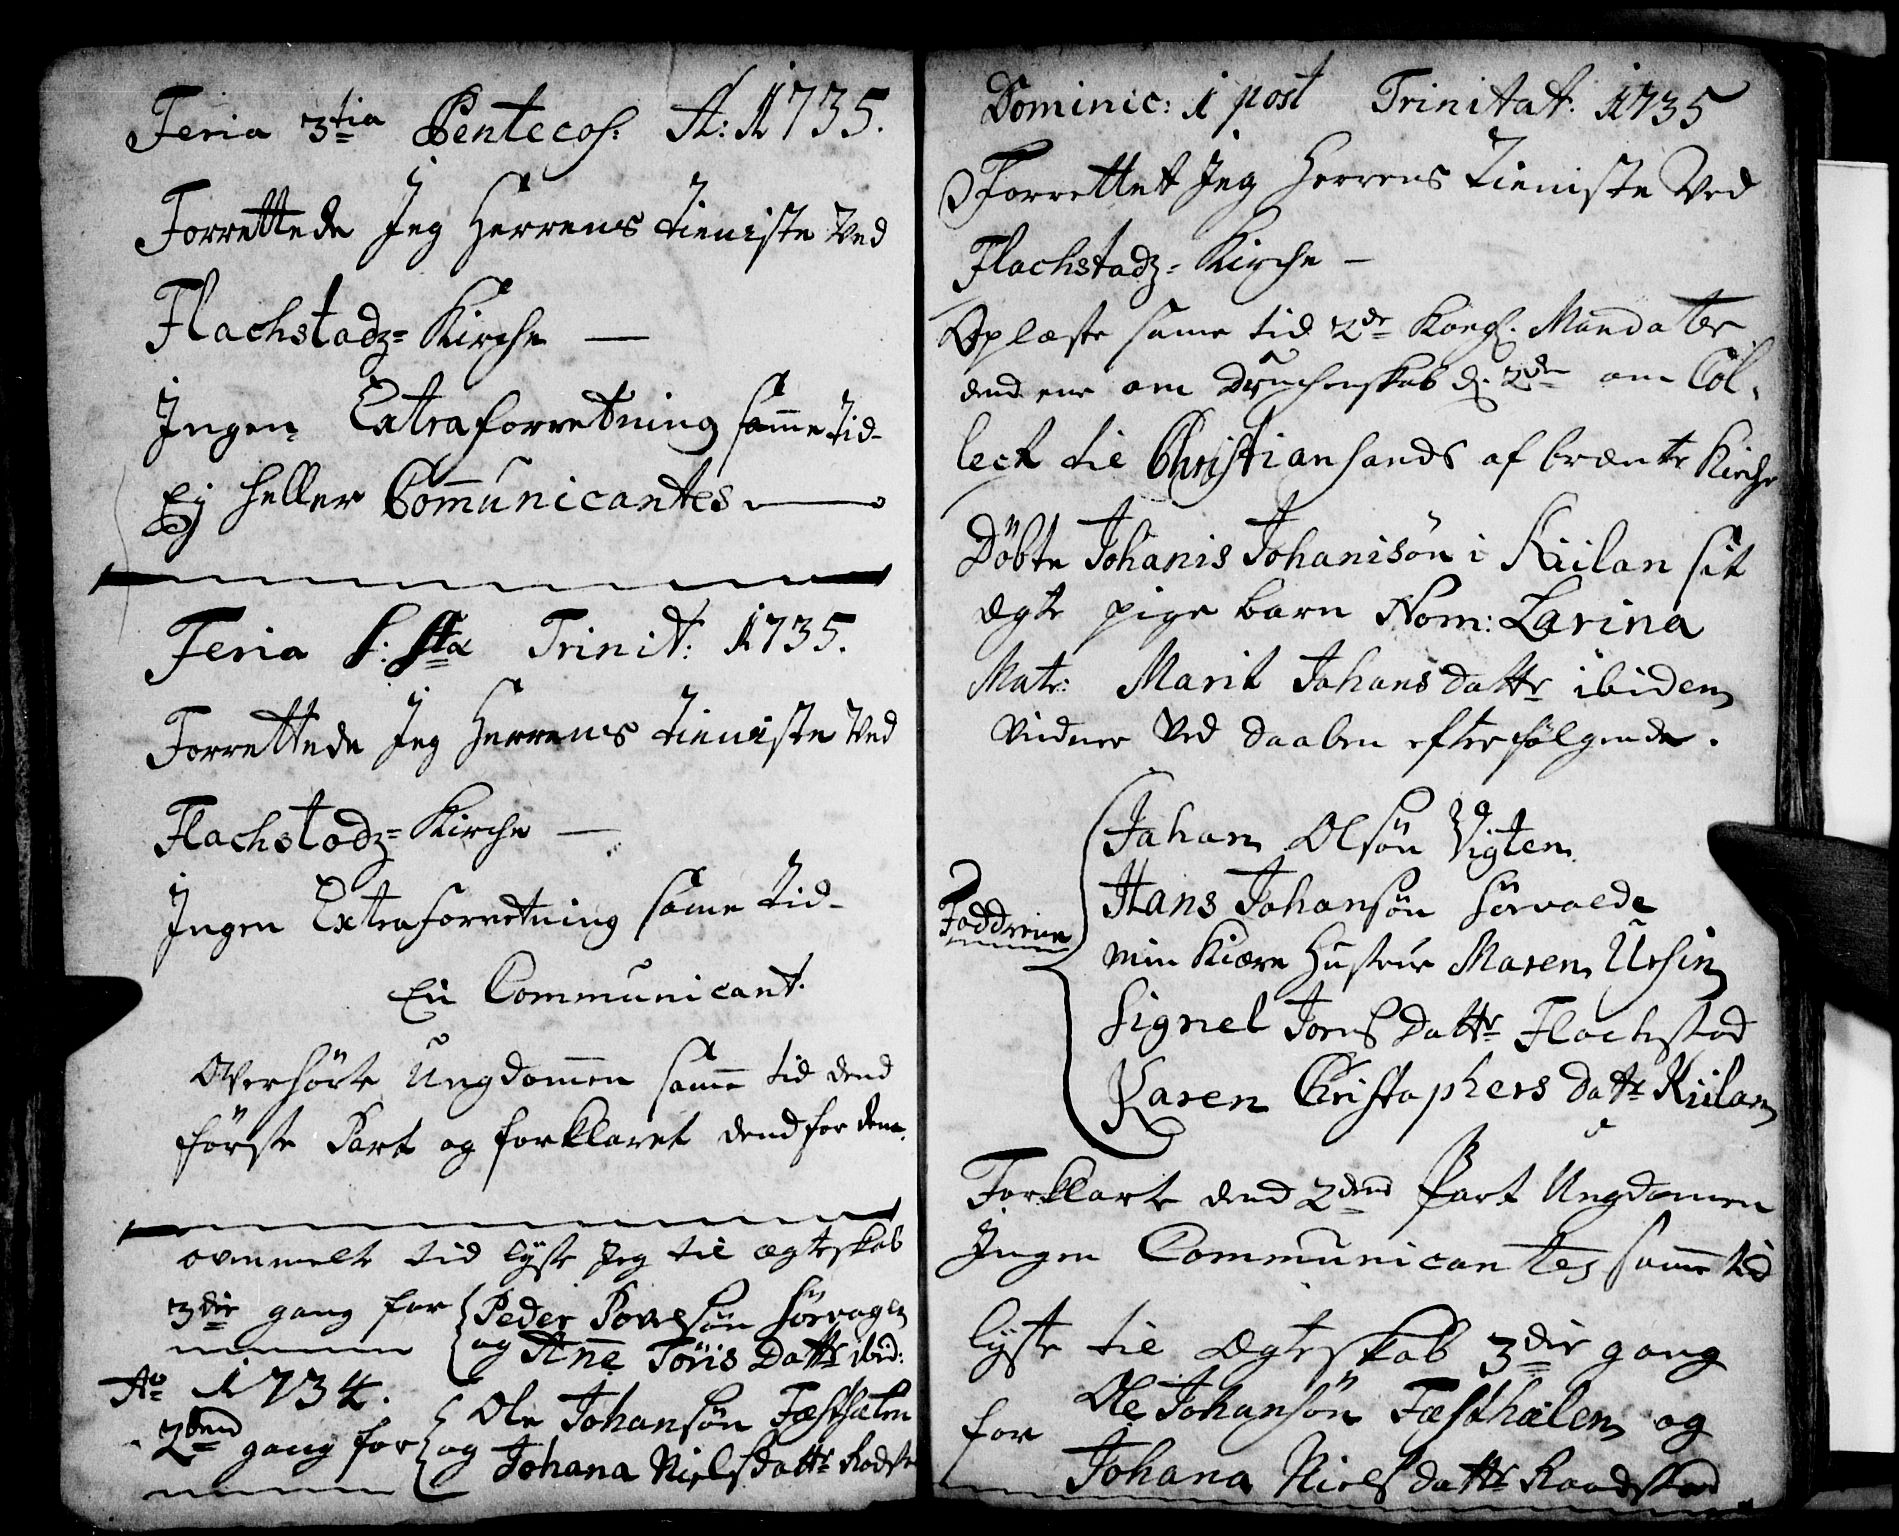 Feria 3tia Pentecos: A: 1735.
Forrettede Jeg Herrens tieniste ved
Flachstadz= Kirche —
Ingen Extraforretning samme tid
Ej heller Communicantes —
Feria S: Stæ Trinit: 1735.
Forrettede Jeg Herrens tieniste ved
Flachstadz= Kirche —
Ingen Extraforretning same tid
En Communicant.
Overhørte Ungdommen samme tid dend
første Part og forklaret dend for dem.
ovenmelte tid lyste Jeg til ægteskab
3die gang for Peder Povelsøn Sørvogen
og Anne Töris Dattr ibid:
Ao 1734.
2dend gang for Ole Johansøn Fæsthælen
og Johana Nielsdattr
Dominic: 1 post Trinitat: 1735
Forrettet Jeg Herrens tieniste Ved
Flachstadz= Kirche —
Oplæste same tid 2de Kongl. Mandater
dend ene om Druchenskab d. 2den om Col-
lect til Christiansands af brænte Kirche
Döbte Johanis Johanisön i Kiilan sit
ægte pige barn Nom: Zarina
Matr: Marit Johansdattr ibidem
vidner Ved daaben efterfølgende.
Faddrene
Johan Olsøn Vigten
Hans Johansøn Sørvaede
min kiære Hustrue Maren Ursin
Signel Joensdattr Flachstad
Karen Christophers dattr Kiilan
Forklarte dend 2dend Part Ungdommen
Ingen Communicantes samme tid
lyste til Ægteskab 3die gang
for Ole Johansøn Fæsthælen og
Johana Nielsdattr Raadstad